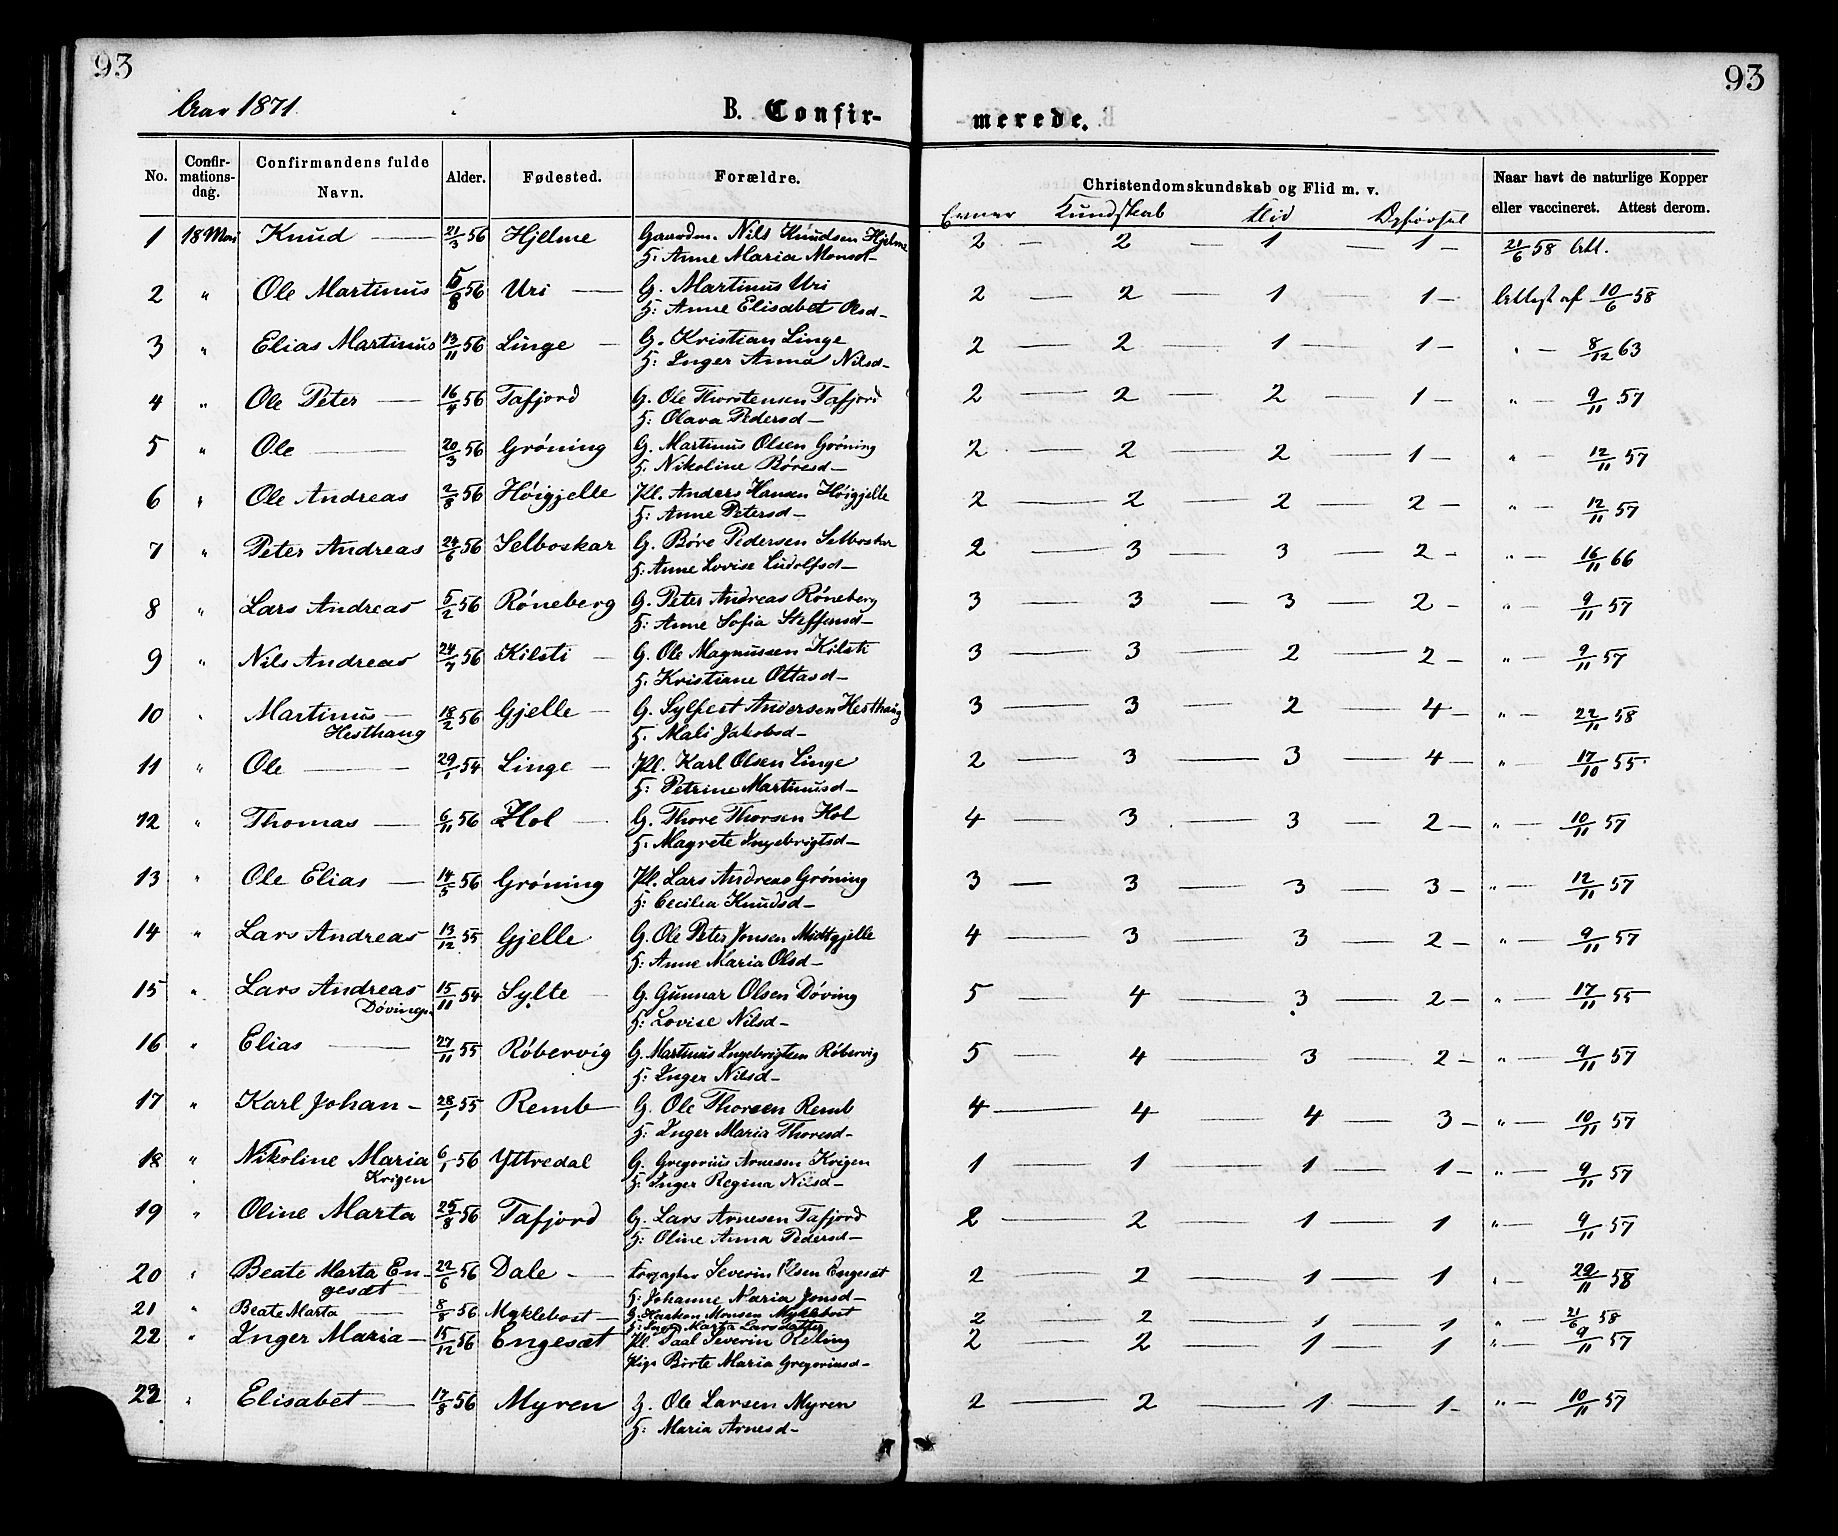 93
93
Aar 1871.
B. Confir-
merede.
No.
Confir-
mations-
dag.
Confirmandens fulde
Navn.
Alder.
Fødested.
Forældre.
Christendomskundskab og Flid m. v.
Evner Kundskab Flid Opførsel
Naar havt de naturlige Kopper
eller vaccineret. Attest derom.
1 18 Mai Knud — 21/3 56 Hjelme Gaardm. Nils Knudsen Hjelme 2 — 2 — 1 — 1 — 21/6 58 Att.
H: Anne Maria Monsd—
2 " Ole Martinus 5/8 56 Uri — G. Martinus Uri 2 — 2 — 1 — 1 — Attest af 10/6 58
H: Anne Elisabet Olsd—
3 " Elias Martinus 13/11 56 Linge — G. Kristian Linge 2 — 2 — 1 — 1 — " — 8/12 63
H: Inger Anna Nilsd—
4 " Ole Peter — 16/4 56 Tafjord G. Ole Thorstensen Tafjord 2 — 2 — 2 — 1 — " — 9/11 57
H: Olava Pedersd—
5 " Ole — 20/3 56 Gröning G. Martinus Olsen Gröning 2 — 2 — 2 — 1 — " — 12/11 57
H. Nikoline Böresd—
6 " Ole Andreas 2/8 56 Höigjelle Pl. Anders Hansen Höigjelle 2 — 2 — 2 — 2 — " — 12/11 57
H: Anne Petersd—
7 " Peter Andreas 24/6 56 Selboskar G. Böre Pedersen Selboskar 2 — 3 — 3 — 2 — " — 16/11 66
H: Anne Lovise Ludolfsd—
8 " Lars Andreas 5/2 56 Röneberg G. Peter Andreas Röneberg 3 — 3 — 3 — 2 — " — 9/11 57
H: Anne Sofia Steffensd—
9 " Nils Andreas 24/7 56 Kilsti — G. Ole Magnussen Kilsti 3 — 3 — 2 — 2 — " — 9/11 57
H. Kristiane Ottasd—
10 " Martinus — 18/2 56 Gjelle — G. Sylfest Andersen Hesthaug 3 — 3 — 2 — 4 — " — 22/11 58
Hesthaug H. Mali Jakobsd—
11 " Ole — 29/1 54 Linge — Pl. Karl Olsen Linge 2 — 3 — 3 — 4 — " — 17/10 55
H: Petrine Martinusd—
12 " Thomas — 6/11 56 Hol — G. Thore Thorsen Hol 4 — 3 — 3 — 2 — " — 10/11 57
H. Magrete Ingebrigtsd—
13 " Ole Elias — 14/5 56 Gröning Pl. Lars Andreas Gröning 3 — 3 — 3 — 3 — " — 12/11 57
H: Cecilia Knudsd—
14 " Lars Andreas 13/12 55 Gjelle G. Ole Peter Jonsen Midtgjelle 4 — 3 — 3 — 2 — " — 9/11 57
H: Anne Maria Olsd—
15 " Lars Andreas 15/11 54 Sylte — G. Gunnar Olsen Döving 5 — 4 — 3 — 2 — " — 17/11 55
Döving H: Lovise Nilsd—
16 " Elias — 27/11 55 Röbervig G. Martinus Ingebrigtsen Röbervig 5 — 4 — 3 — 2 — " — 9/11 57
H: Inger Nilsd—
17 " Karl Johan — 28/1 55 Remb — G. Ole Thorsen Remb 4 — 4 — 4 — 3 — " — 10/11 57
H: Inger Maria Thoresd—
18 " Nikoline Maria 6/1 56 Yttredal G. Gregorius Arnesen Krigen 1 — 1 — 1 — 1 — " — 9/11 57
Krigen H: Inger Regina Nilsd—
19 " Oline Marta 25/8 56 Tafjord G. Lars Arnesen Tafjord 2 — 2 — 1 — 1 " — 9/11 57
H: Oline Anna Pedersd—
20 " Beate Marta En- 22/6 56 Dale — Forpagter Severin Olsen Engesæt 2 — 2 — 1 — 1 " — 22/11 58
gesæt H: Johanne Maria Jonsd—
21 " Beate Marta — 8/8 56 Myklebost — G. Haakon Monsen Myklebost 2 — 2 — 1 — 1 " — 21/6 58
H: Inger Marta Larsdatter
22 " Inger Maria — 15/12 56 Engesæt Pl. Paal Severin Relling 2 — 2 — 1 — 1 " — 9/11 57
Pige Börte Maria Gregoriusd—
23 " Elisabet — 17/8 56 Myren G. Ole Larsen Myren 2 — 2 — 1 — 1 — " — 10/11 57
H: Maria Arnesd—